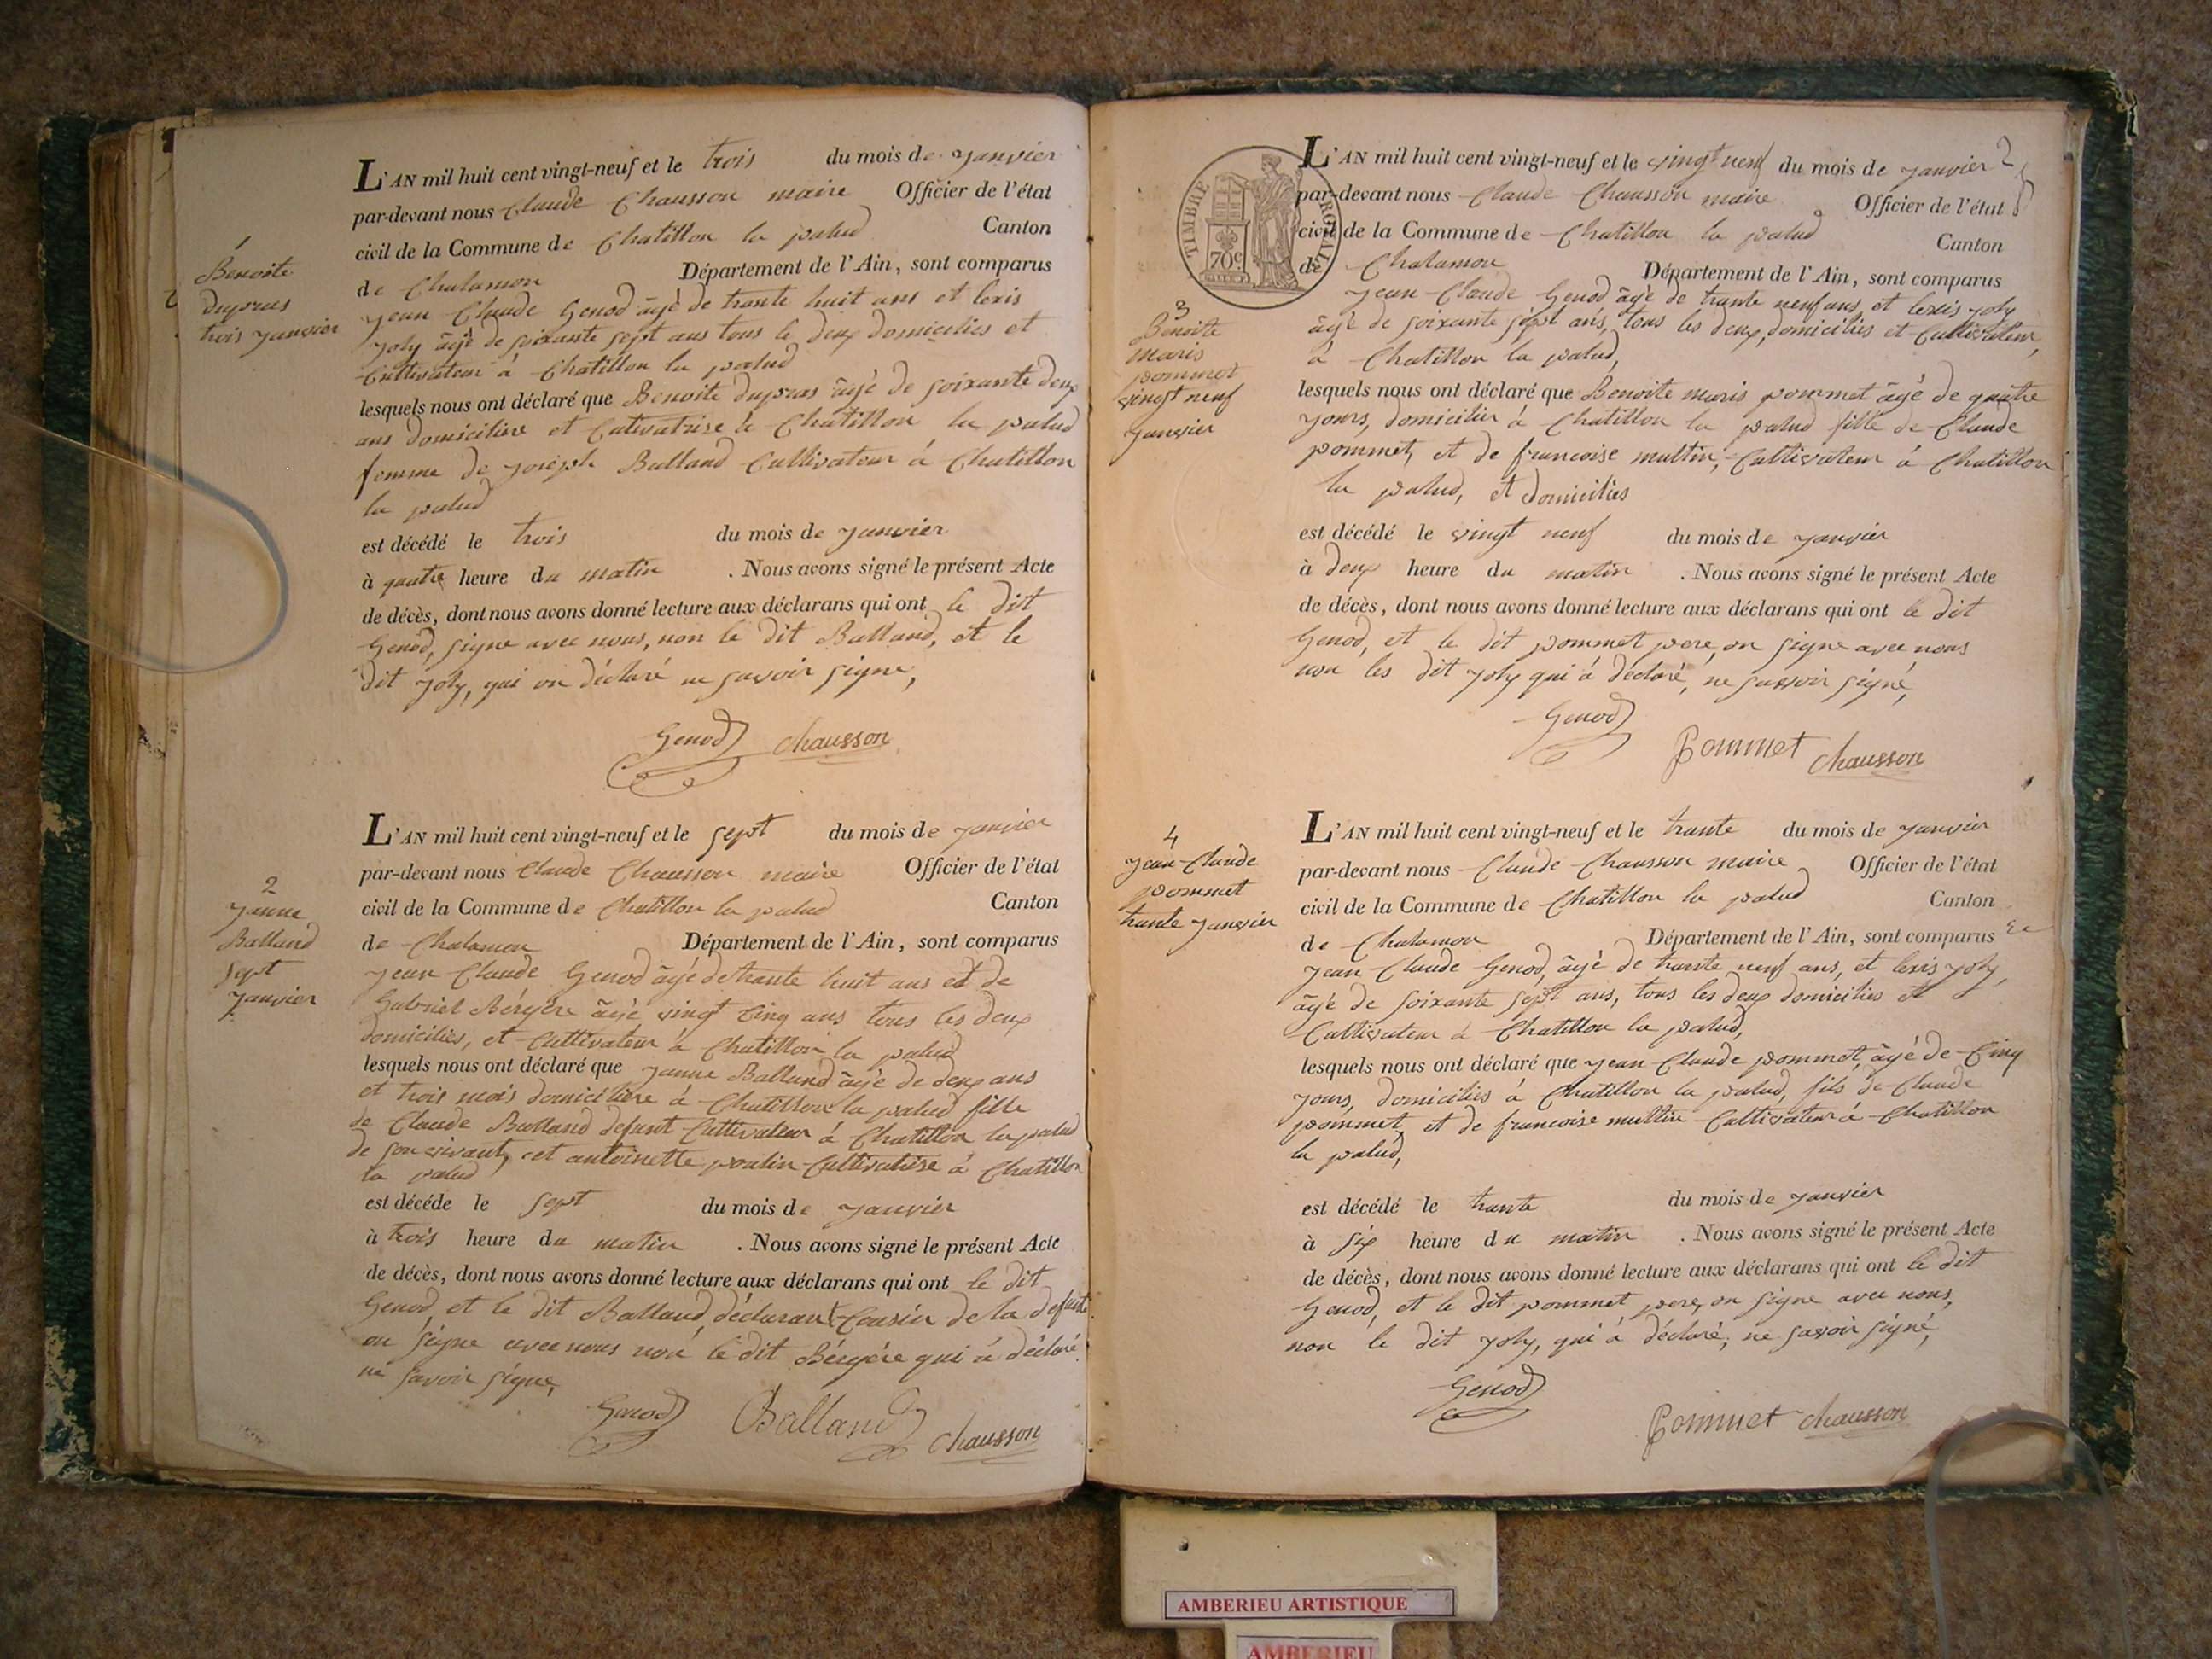 1
Benoite
dupras
trois janvier
L'AN mil huit cent vingt-neuf et le trois du mois de janvier
par-devant nous Claude Chausson maire Officier de l'état
civil de la Commune de Chatillon la palud Canton
de Chalamon Département de l'Ain, sont comparus
jean Claude Genod âgé de trante huit ans et lexis
joly âgé de soixante sept ans tous le deux domicilies et
Cultivateur à Chatillon la palud
lesquels nous ont déclaré que Benoite dupras âgé de soixante deux
ans domiciliere et Cutivatrise à Chatillon la palud
femme de joseph Balland Cultivateur à Chatillon
la palud
est décédé le trois du mois de janvier
à quatre heure du matin . Nous avons signé le présent Acte
de décès, dont nous avons donné lecture aux déclarans qui ont le dit
Genod, signe avec nous, non le dit Balland, et le
dit joly, qui on déclaré ne savoir signe,
Genod chausson
2
janne
Balland
sept
janvier
L'AN mil huit cent vingt-neuf et le sept du mois de janvier
par-devant nous Claude Chausson maire Officier de l'état
civil de la Commune de Chatillon la palud Canton
de Chalamon Département de l'Ain, sont comparus
jean Claude Genod âgé de trante huit ans et de
Gabriel Bérgére âgé vingt Cinq ans tous les deux
domicilies, et Cultivateur à Chatillon la palud
lesquels nous ont déclaré que janne Balland âgé de deux ans
et trois mois domiciliere à Chatillon la palud fille
de Claude Balland defunt Cultivateur à Chatillon la palud
de son vivant, et antoinette poulin Cultivatrise à Chatillon
la palud
est décéde le sept du mois de janvier
à trois heure du matin . Nous avons signé le présent Acte
de décès, dont nous avons donné lecture aux déclarans qui ont le dit
Genod, et le dit Balland, déclarant Cousin de la defunte
on signe avec nous non le dit Bérgére qui à déclaré
ne savoir signe,
Genod Balland chausson
TIMBRE ROYAL
70c
3
Benoite
maris
pommet
vingt neuf
janvier
L'AN mil huit cent vingt-neuf et le vingt neuf du mois de janvier 2
par-devant nous Claude Chausson maire Officier de l'état
civil de la Commune de Chatillon la palud Canton
de Chalamon Département de l'Ain, sont comparus
jean Claude Genod âgé de trante neuf ans, et lexis joly
âgé de soixante sept ans, tous les deux, domicilies et Cultivateur,
à Chatillon la palud,
lesquels nous ont déclaré que Benoite maris pommet âgé de quatre
jours, domicilier à Chatillon la palud fille de Claude
pommet, et de francoise multin, Cultivateur à Chatillon
la palud, et domicilies
est décédé le vingt neuf du mois de janvier
à deux heure du matin . Nous avons signé le présent Acte
de décès, dont nous avons donné lecture aux déclarans qui ont le dit
Genod, et le dit pommet pere, on signe avec nous
non les dit joly qui à déclaré, ne savoir signé,
Genod Pommet chausson
4
jean Claude
pommet
trante janvier
L'AN mil huit cent vingt-neuf et le trante du mois de janvier
par-devant nous Claude Chausson maire Officier de l'état
civil de la Commune de Chatillon la palud Canton
de Chalamon Département de l'Ain, sont comparus
jean Claude Genod, âgé de trante neuf ans, et lexis joly,
âgé de soixante sept ans, tous les deux domicilies et
Cultivateur à Chatillon la palud,
lesquels nous ont déclaré que jean Claude pommet, âgé de Cinq
jours, domicilies à Chatillon la palud, fils de Claude
pommet, et de francoise multin Cultivateur à Chatillon
la palud,
est décédé le trante du mois de janvier
à six heure du matin . Nous avons signé le présent Acte
de décès, dont nous avons donné lecture aux déclarans qui ont le dit
Genod, et le dit pommet pere, on signe avec nous,
non le dit joly, qui à déclaré, ne savoir signé,
Genod
Pommet chausson
AMBERIEU ARTISTIQUE
AMBERIEU